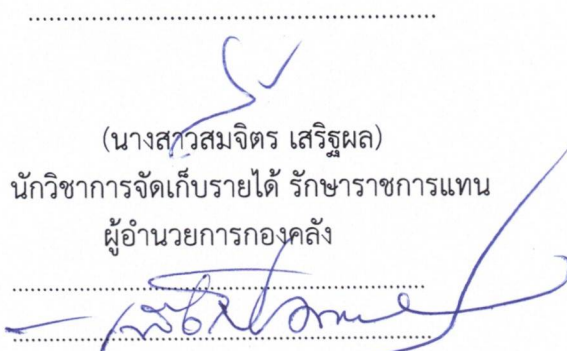 (นางสาวสมจิตร เสริฐผล)
นักวิชาการจัดเก็บรายได้ รักษาราชการแทน
ผู้อำนวยการกองคลัง